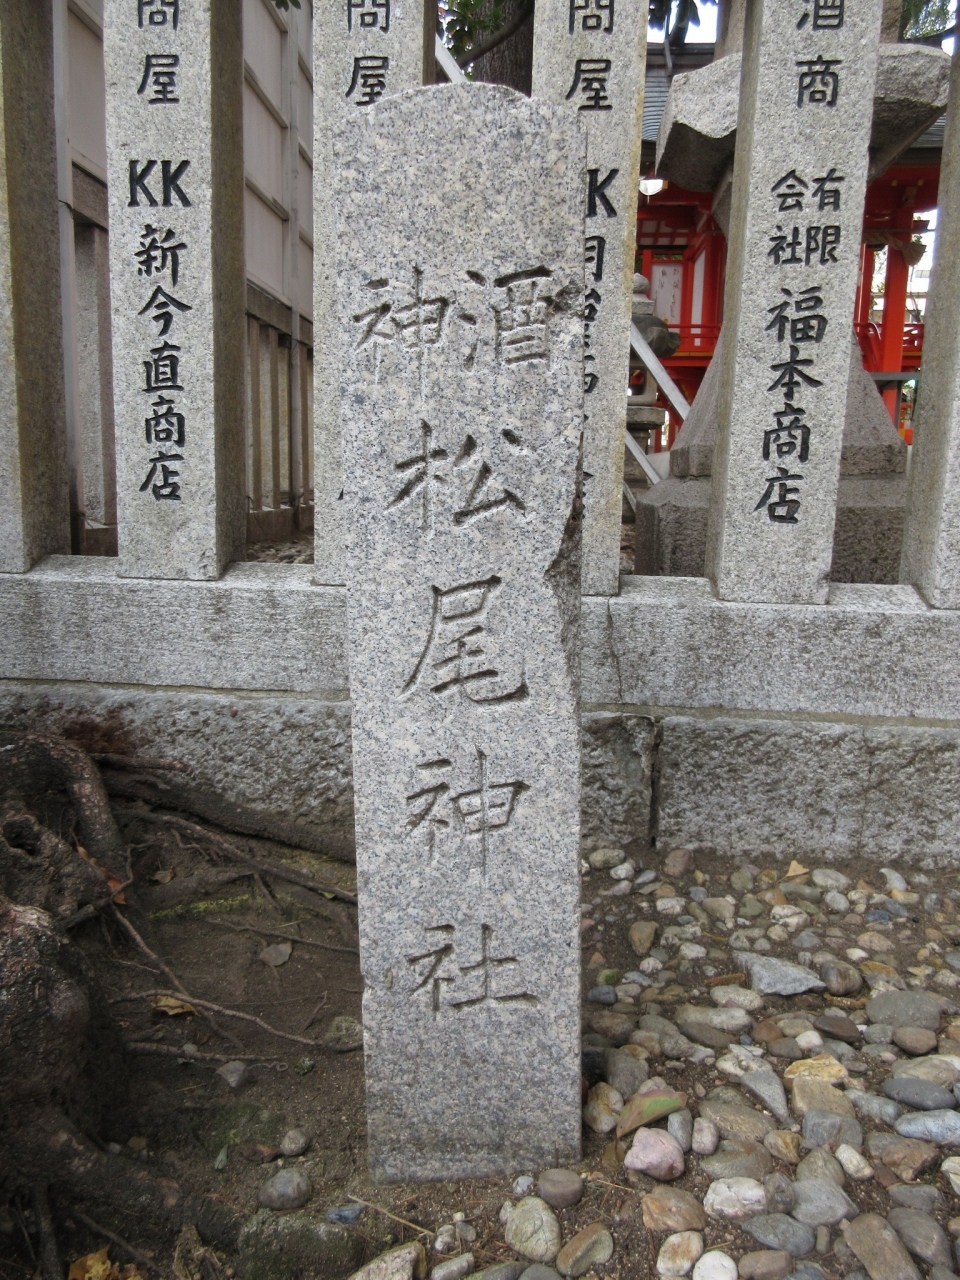 酒神
松尾神社
問屋
KK新今直商店
問屋
問屋
KK
酒商
有限会社
福本商店